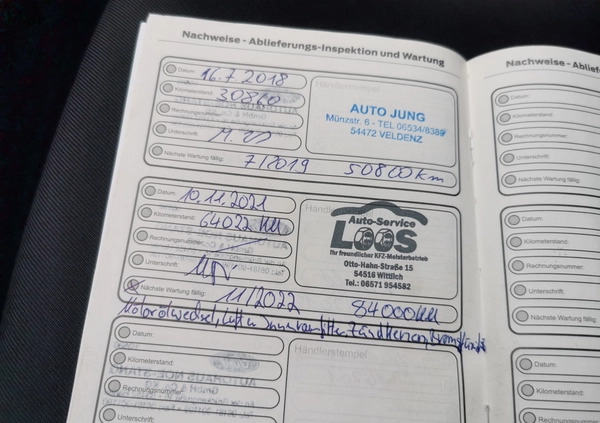 Nachweise - Ablieferungs-Inspektion und Wartung
Datum: 16.7.2018
Kilometerstand: 30810
Rechnungsnummer:
Unterschrift:
Nächste Wartung fällig: 7/2019 50800 km
Händlerstempel
AUTO JUNG
Münzstr. 6 - TEL 06534/8389
54472 VELDENZ
Datum: 10.11.2021
Kilometerstand: 64022 KM
Rechnungsnummer:
Unterschrift:
Nächste Wartung fällig: 11/2022 84000 KM
Auto-Service
LOOS
Ihr freundlicher KFZ-Meisterbetrieb
Otto-Hahn-Straße 15
54516 Wittlich
Tel.: 06571 954582
Motorölwechsel, Luft u. Innenraumfilter, Zündkerzen,
Datum:
Kilometerstand:
Rechnungsnummer:
Unterschrift:
Händlerstempel
Nachweise - Ablief
Datum:
Kilometerstand:
Rechnungsnummer:
Unterschrift:
Nächste Wartung fällig:
Datum:
Kilometerstand:
Rechnungsnummer:
Unterschrift:
Nächste Wartung fällig:
Datum:
Kilometerstand:
Rechnungsnummer:
Unterschrift: